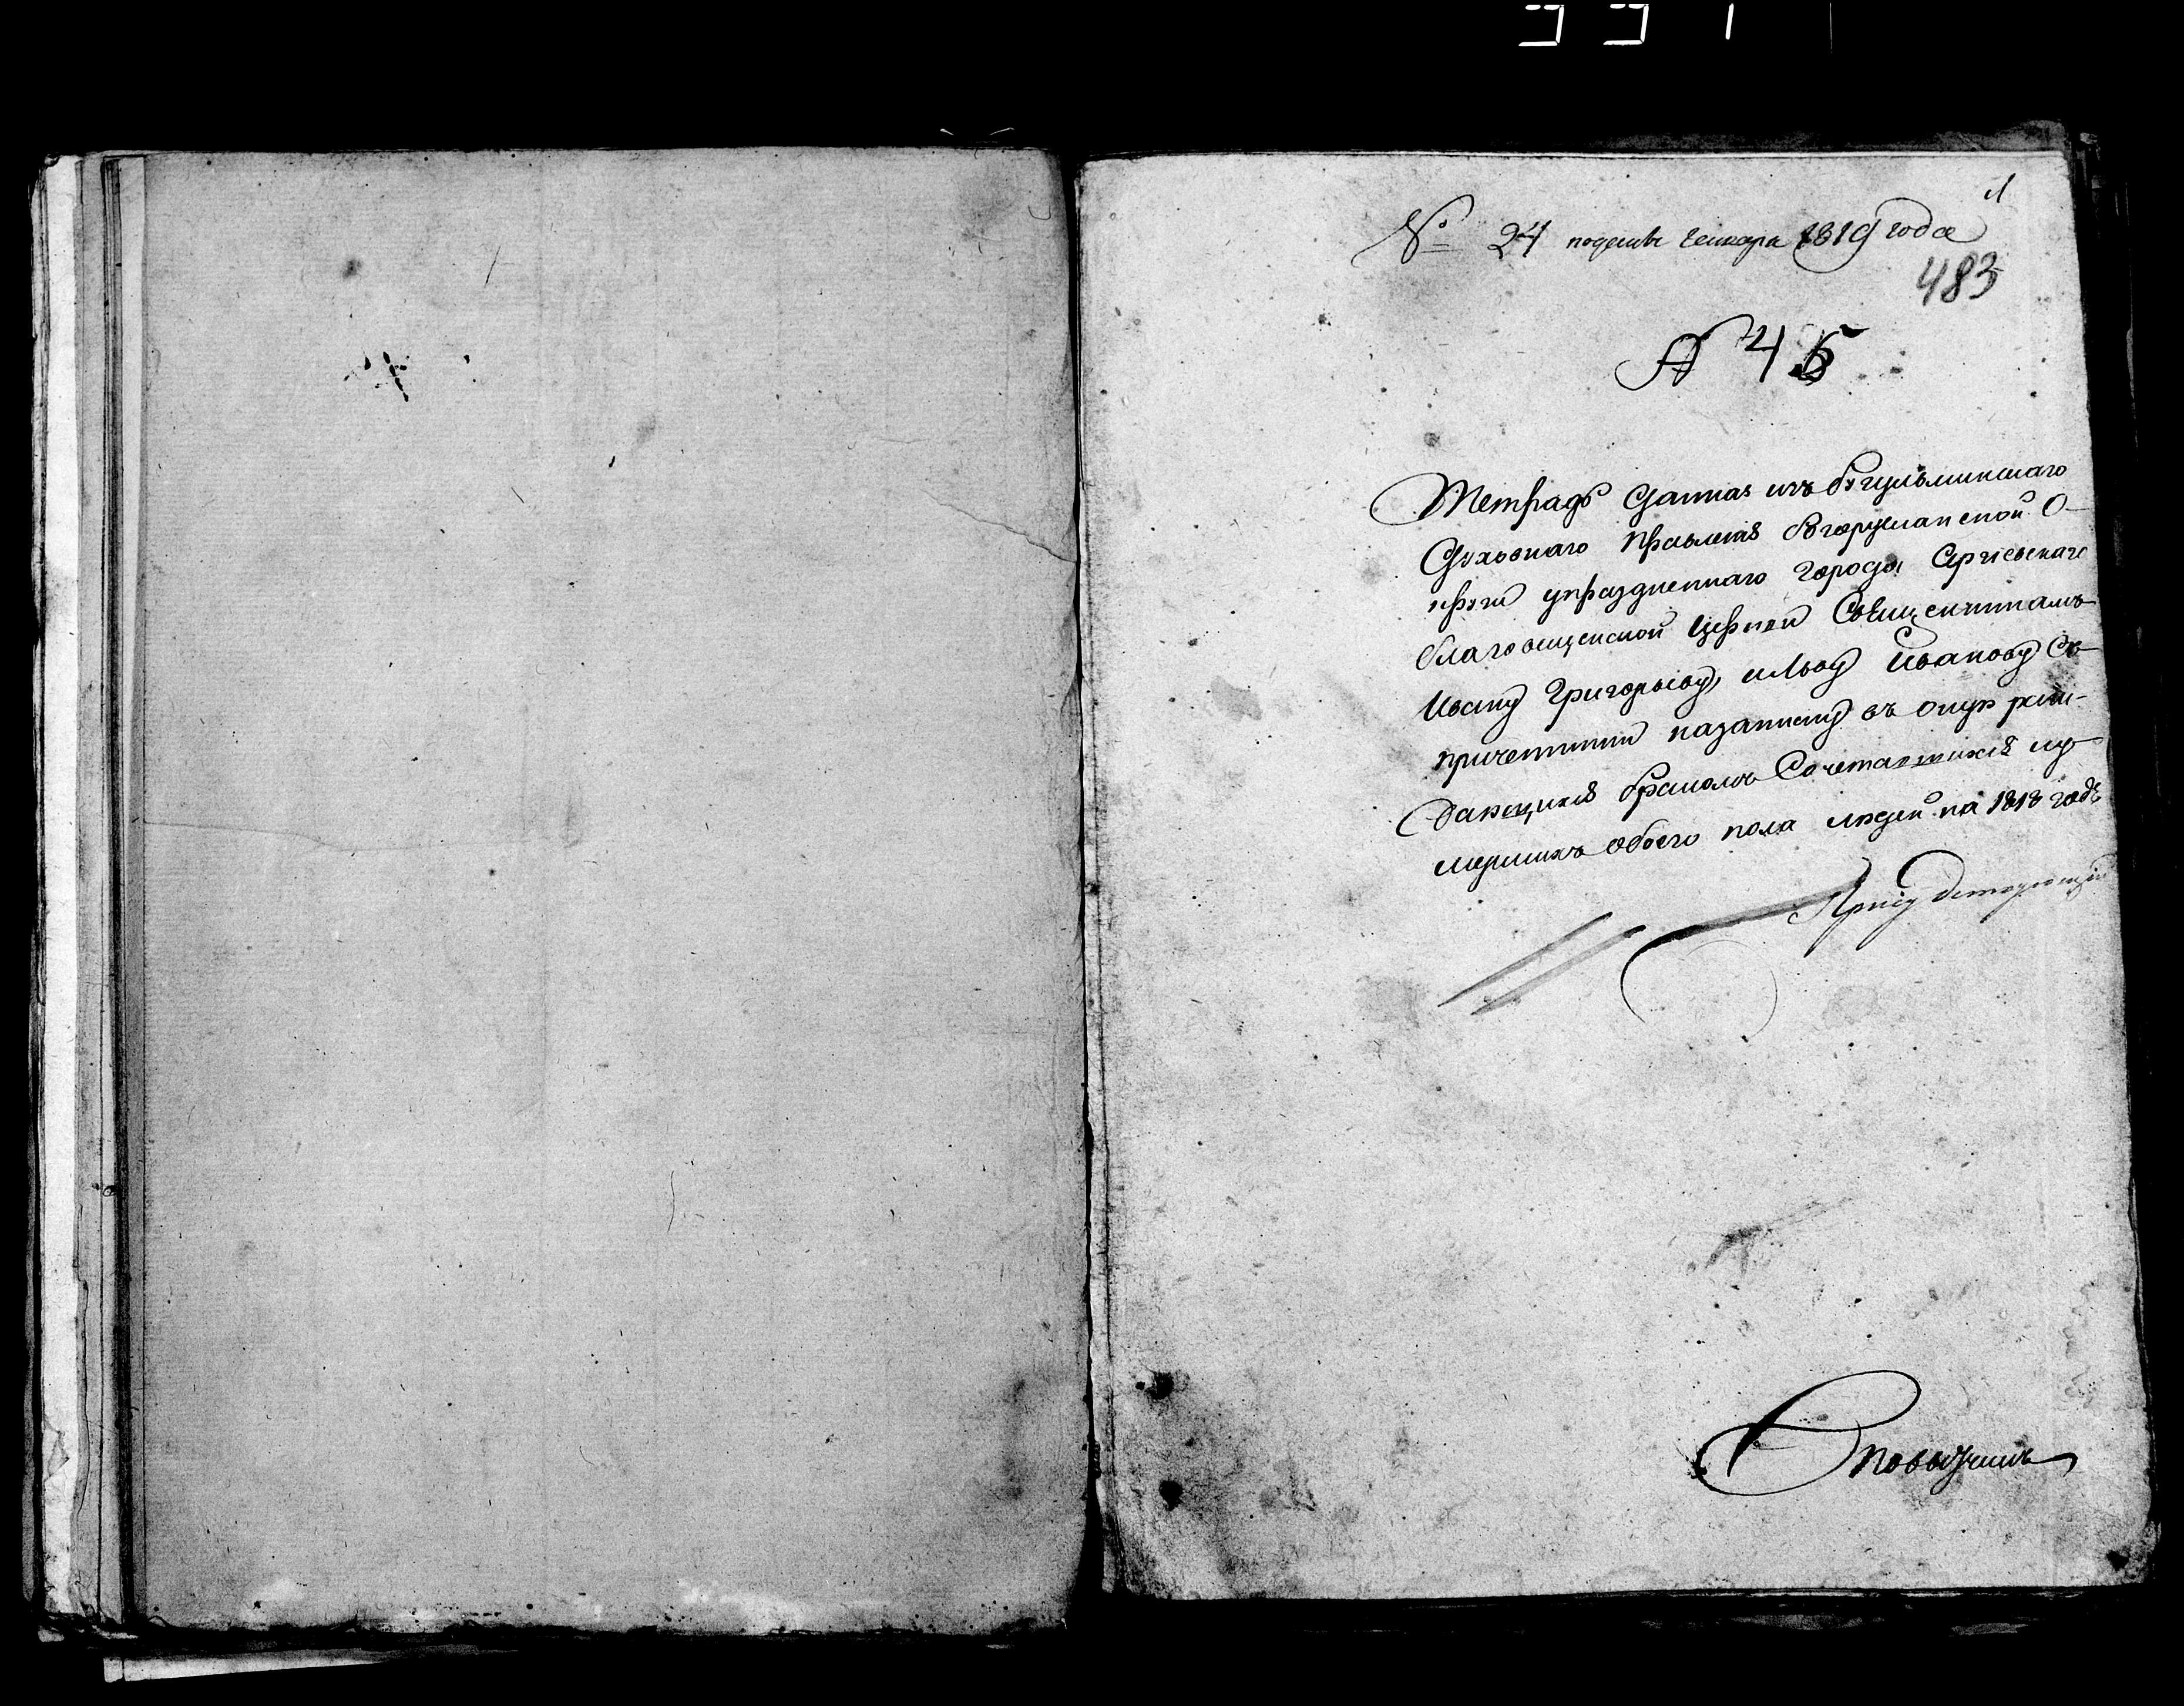 1
№ 24 подане генваря 1819 года
483
№ 45
Тетрадь Данная изъ бугульминскаго
Духовнаго правленія бугурусланской О-
круги упраздненнаго города Сергіевскаго
благовещенской церкви Священникамъ
Ивану Григорьеву, ильву Иванову Съ
причетники назаписку въ оную рож-
дающихся бракомъ Сочетавшихся иу-
мершихъ обоего пола людей на 1818 годъ
Присудствующій
Повытчикъ